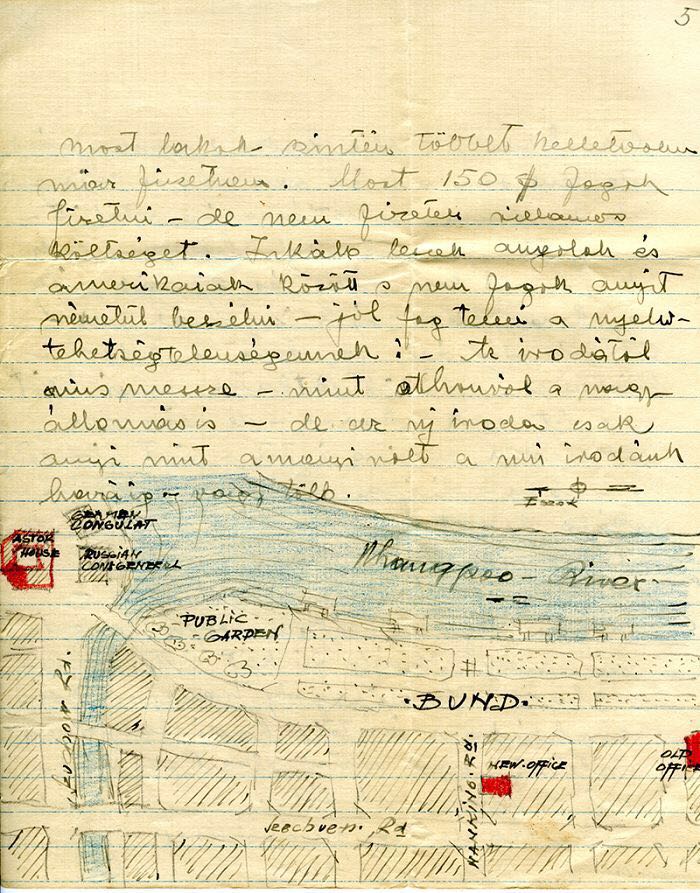 5
most lakok szintén többet kelletvolna
már fizetnem. Most 150 $ fogok
fizetni – de nem fizetek villamos
költséget. Inkább leszek angolok és
amerikaiak között s nem fogok anyit
németül beszélni – jól fog tenni a nyelv-
tehetségtelenségemnek! – Az irodától
nincs messze – mint othonról a nagy
állomás is – de az uj iroda csak
anyi mint amenyi volt a mi irodánk
– vagy több.
Észak
GERMEN
CONGULAT
ASTOR
HOUSE
RUSSIAN
CONSGENERAL
Whangpoo – River
PUBLIC
GARDEN
· BUND ·
Rd.
NEW-OFFICE
OLD
OFFICE
NANKING. Rd.
Seechuen. Rd